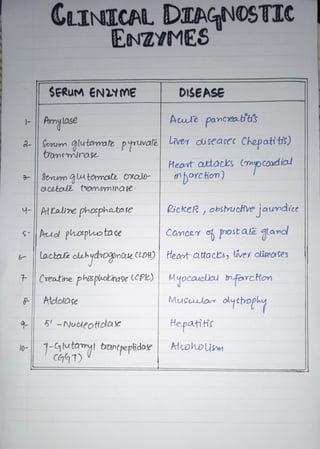 CLINICAL DIAGNOSTIC
ENZYMES
SERUM ENZYME DISEASE
1- Amylase Acute pancreatitis
2- Serum glutamate pyruvate Liver diseases (hepatitis)
transminase
3- Serum glutamate oxalo- Heart attacks (myocardial
acetate transminase infarction)
4- Alkaline phosphatase Rickets, obstructive jaundice
5- Acid phosphatase Cancer of prostate gland
6- Lactate dehydrogenase (LDH) Heart attacks, liver diseases
7- Creatine phosphokinase (CPK) Myocardial infarction
8- Aldolase Muscular dystrophy
9- 5' -Nucleotidase Hepatitis
10- γ-Glutamyl transpeptidase Alcoholism
(GGT)